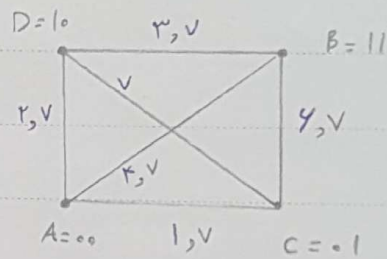 D=10 ۳,۷ B=11
۷
۲,۷ ۶,۷
۴,۷
A=00 ۱,۷ C=01